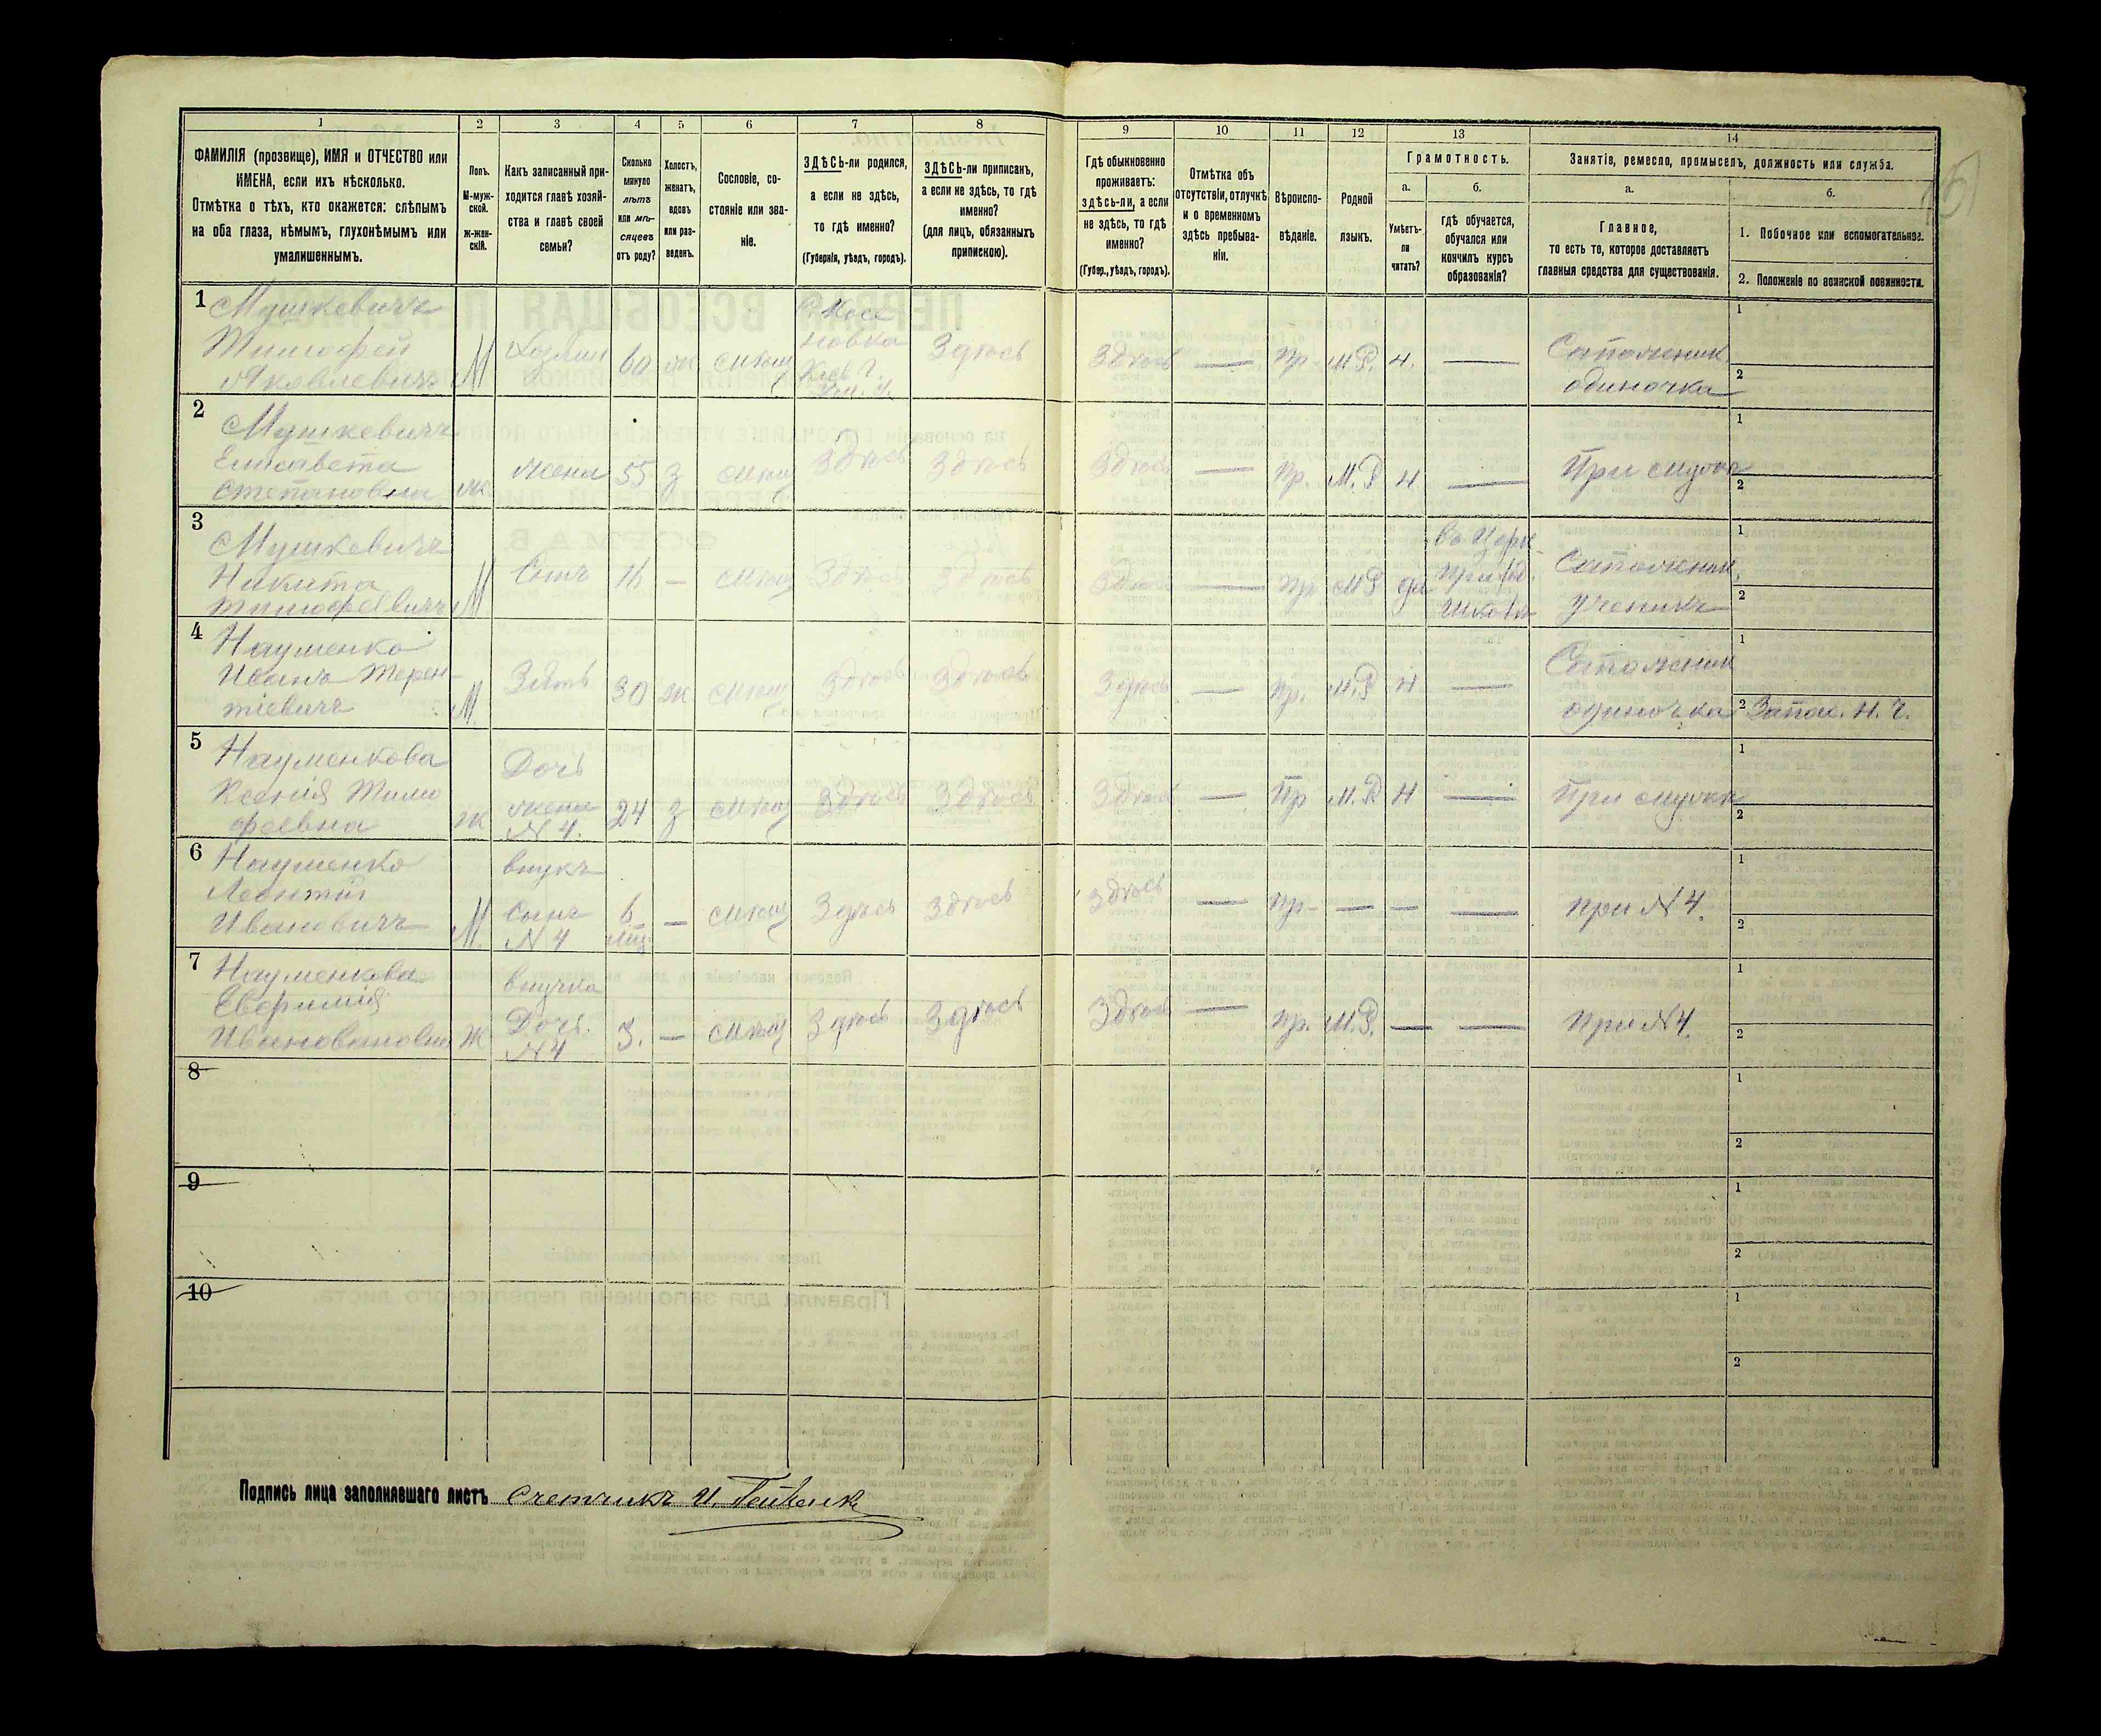 1
2
3
4
5
6
7
8
9
10
11
12
13
14
ФАМИЛІЯ (прозвище), ИМЯ и ОТЧЕСТВО или
ИМЕНА, если ихъ нѣсколько.
Отмѣтка о тѣхъ, кто окажется: слѣпымъ
на оба глаза, нѣмымъ, глухонѣмымъ или
умалишеннымъ.
Полъ.
М-муж-
ской.
ж-жен-
скій.
Какъ записанный при-
ходится главѣ хозяй-
ства и главѣ своей
семьи?
Сколько
минуло
лѣтъ
или мѣ-
сяцевъ
отъ роду?
Холостъ,
женатъ,
вдовъ
или раз-
веденъ.
Сословіе, со-
стояніе или зва-
ніе.
ЗДѢСЬ-ли родился,
а если не здѣсь,
то гдѣ именно?
(Губернія, уѣздъ, городъ).
ЗДѢСЬ-ли приписанъ,
а если не здѣсь, то гдѣ
именно?
(для лицъ, обязанныхъ
припискою).
Гдѣ обыкновенно
проживаетъ:
здѣсь-ли, а если
не здѣсь, то гдѣ
именно?
(Губер., уѣздъ, городъ).
Отмѣтка объ
отсутствіи, отлучкѣ
и о временномъ
здѣсь пребыва-
ніи.
Вѣроиспо-
вѣданіе.
Родной
языкъ.
Грамотность.
а.
Умѣетъ-
ли
читать?
б.
гдѣ обучается,
обучался или
кончилъ курсъ
образованія?
Занятіе, ремесло, промыселъ, должность или служба.
а.
Главное,
то есть то, которое доставляетъ
главныя средства для существованія.
б.
1. Побочное или вспомогательное.
2. Положеніе по воинской повинности.
1 Мушкевичъ
Тимофей
Яковлевичъ
М
Хозяин
60
ж
мѣщ
новка
Здѣсь
Здѣсь
—
Пр.
М.Р.
н.
—
Сапожник
одиночка
1
2
2
Мушкевичъ
Елисавета
Степановна
ж
жена
55
з
мѣщ
Здѣсь
Здѣсь
Здѣсь
—
Пр.
М.Р
н.
—
При мужѣ
1
2
3
Мушкевичъ
Никита
Тимофеевичъ
М
Сынъ
—
мѣщ
Здѣсь
Здѣсь
Здѣсь
—
пр
МР
да
Въ Церк.
приход.
школѣ
Сапожник,
ученикъ
1
2
4
Науменко
Иванъ Терен-
тіевичъ
М.
Зять
30
ж
мѣщ
Здѣсь
Здѣсь
Здѣсь
—
пр.
М.Р
н
—
Сапожник
одиночка
1
2 Запас. н. ч.
5
Науменкова
Ксенія Тимо
феевна
ж
Дочь
жена
N 4.
24
з
мѣщ
Здѣсь
Здѣсь
Здѣсь
—
Пр
М.Р
н
—
При мужѣ
1
2
6
Науменко
Леонтій
Ивановичъ
М.
внукъ
Сынъ
N 4
6
мѣц.
—
мѣщ
Здѣсь
Здѣсь
Здѣсь
—
пр-
—
—
—
при N 4.
1
2
7
Науменкова
Евфимія
Ивановановна
Ж
внучка
Дочь.
N 4
3.
—
мѣщ
Здѣсь
Здѣсь
Здѣсь
—
пр.
М.Р.
—
—
При N 4.
1
2
8
1
2
9
1
2
10
1
2
Подпись лица заполнявшаго листъ Счетчикъ И.